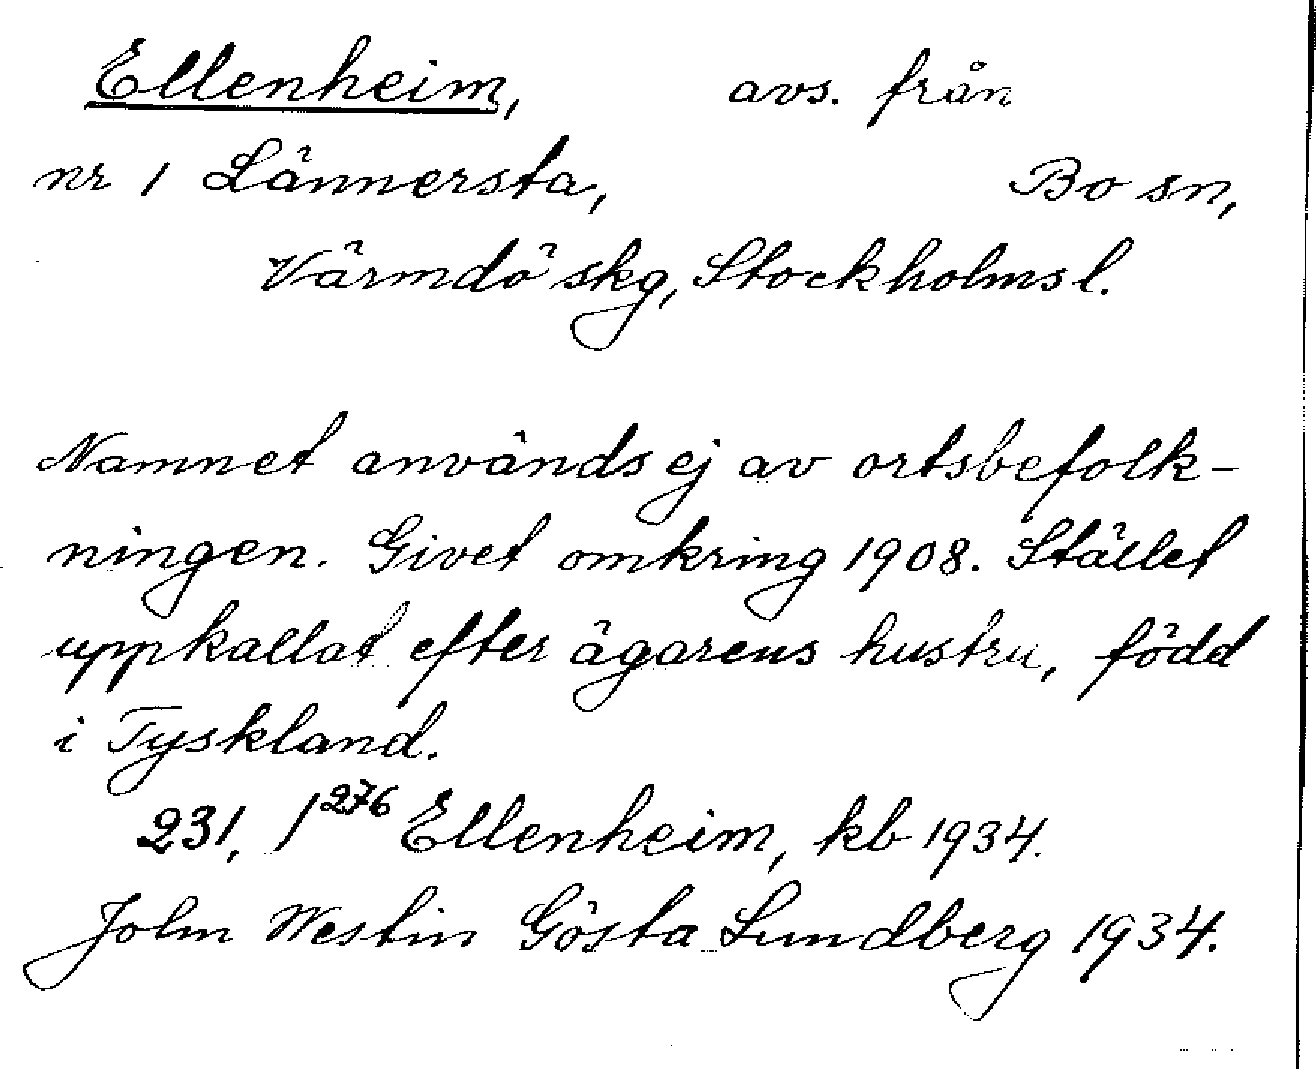 Ellenheim, avs. från
nr 1 Lännersta, Bo sn,
Värmdö skg, Stockholms l.
Namnet används ej av ortsbefolk-
ningen. Givet omkring 1908. Stället
uppkallat efter ägarens hustru, född
i Tyskland.
231, 1²⁷⁶ Ellenheim, kb 1934.
John Westin Gösta Lundberg 1934.